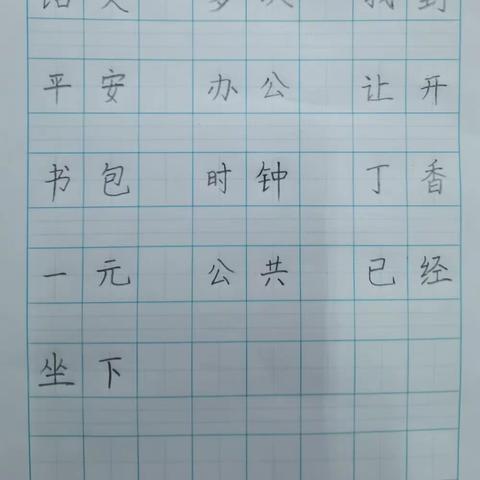 平安 办公 让开
书包 时钟 丁香
一元 公共 已经
坐下